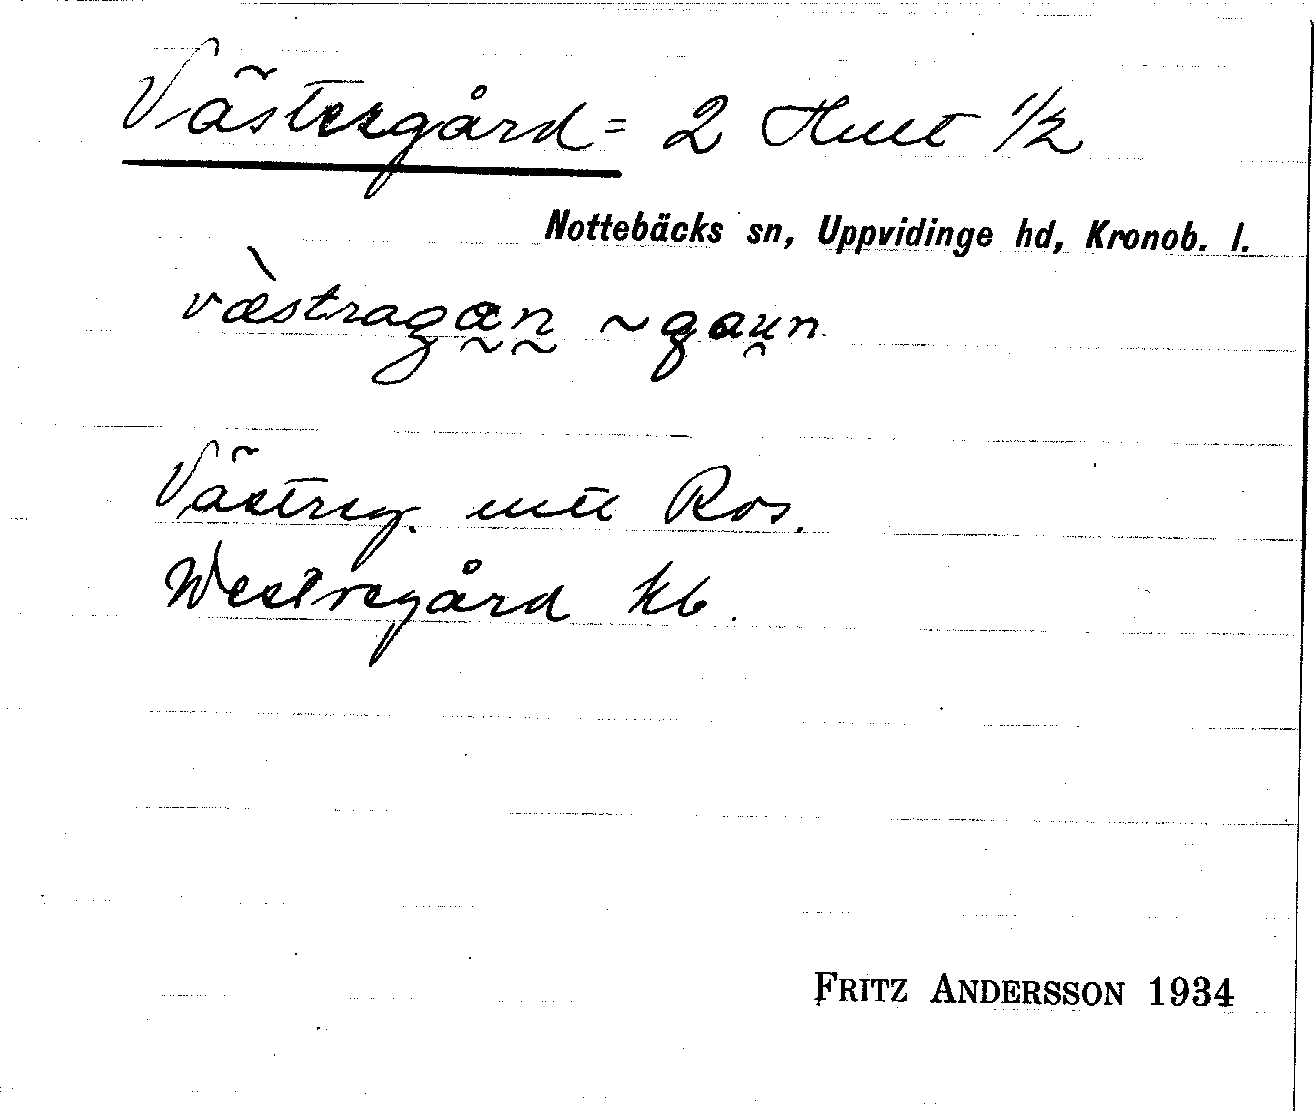 Västergård = 2 Hult 1/2
Nottebäcks sn, Uppvidinge hd, Kronob. l.
væ̀stragan ~ gaun
Västreg. utt Ros.
Westregård kb.
FRITZ ANDERSSON 1934